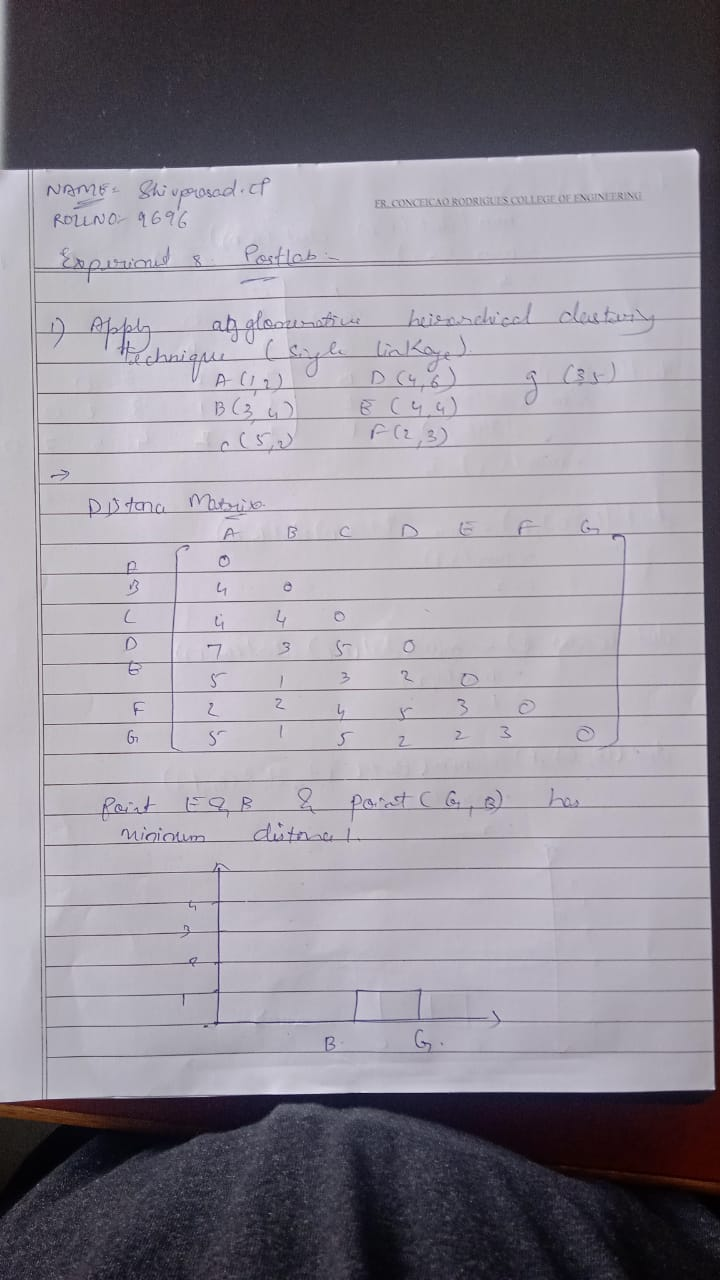 NAME= Shivprasad.CP
FR. CONCEICAO RODRIGUES COLLEGE OF ENGINEERING
ROLLNO:- 9696
Experiment 8. Postlab:-
1) Apply agglomerative heirarchical clustering
technique (single linkage).
A (1,2) D (4,6) g (3,5)
B (3,4) E (4,4)
C (5,2) F (2,3)
→
Distance Matrix.
A B C D E F G
A 0
B 4 0
C 4 4 0
D 7 3 5 0
E 5 1 3 2 0
F 2 2 4 5 3 0
G 5 1 5 2 2 3 0
Point E & B & point (G, B) has
minimum distance 1.
4
3
2
1
B. G.